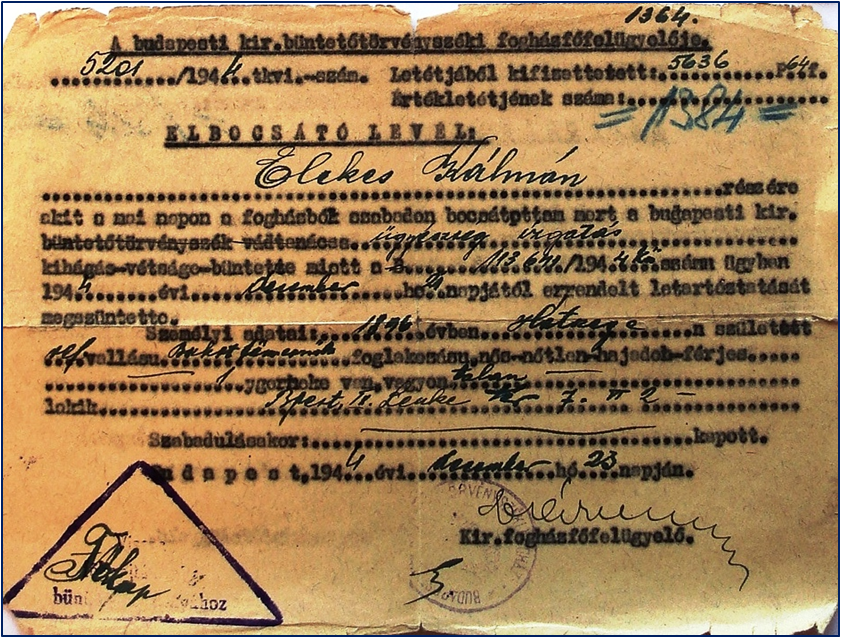 1364.
A budapesti kir.büntetőtörvényszéki fogházfőfelügyelője.
5201/1944.tkvi.-szám. Letétjából kifizettetett:5636 P.64f.
Értékletétjének száma:
=1384=
ELBOCSÁTÓ LEVÉL:
Elekes Kálmán részére
akit a mai napon a fogházból szabadon bocsátottam mert a budapesti kir.
büntetőtörvényszék vádtanácsa ügyészség
kihágás-vétség-büntette miatt a 113.641/1944 számu ügyben
1944 évi december hó napjától elrendelt letartóztatását
megszüntette.
Személyi adatai: 1896 évben Hátszeg n született
ref vallásu foglakozásu nős-nőtlen-hajadon-férjes
gyermeke van, vagyontalan
lakik Bpest, Lenke 7. II 2 -
Szabadulásakor: kapott.
Budapest,1944 évi december hó 23 napján.
Kir.fogházfőfelügyelő.